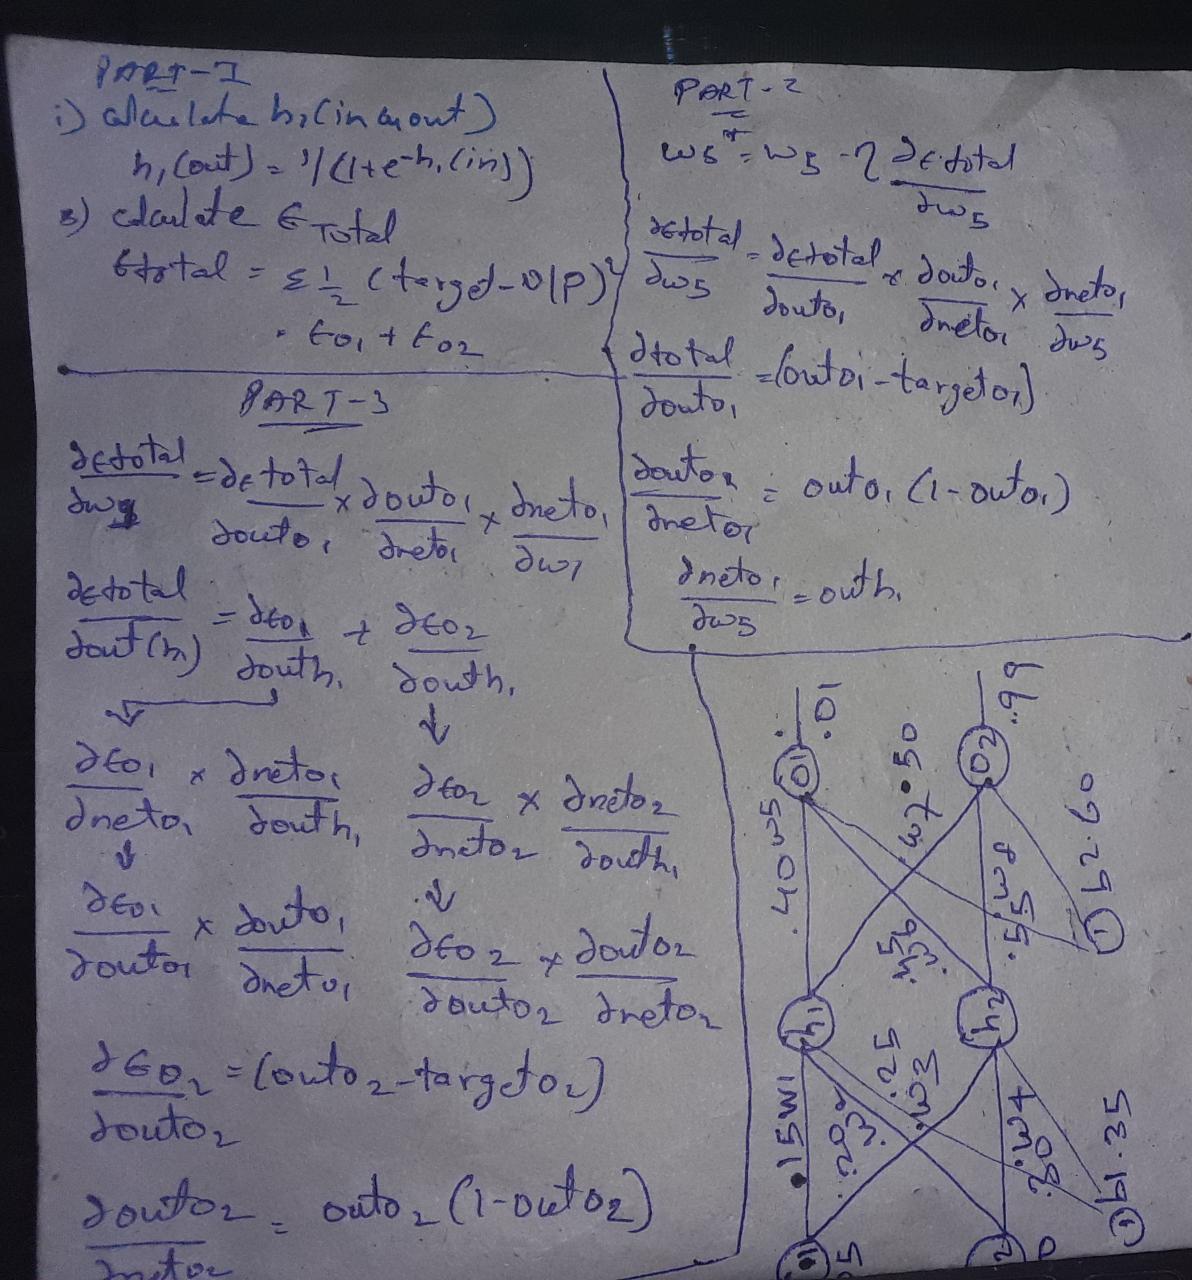 PART-I
i) calculate h₁(in & out)
h₁(out) = 1/(1+e^-h₁(in))
3) calculate ETotal
Etotal = Σ 1/2 (target-O/P)²
= Eo₁ + Eo₂
PART-2
w5⁺ = w5 - η ∂Etotal/∂w5
∂Etotal/∂w5 = ∂Etotal/∂outo₁ × ∂outo₁/∂neto₁ × ∂neto₁/∂w5
∂total/∂outo₁ = (outo₁-targeto₁)
∂outo₁/∂neto₁ = outo₁ (1-outo₁)
∂neto₁/∂w5 = outh₁
PART-3
∂Etotal/∂w₁ = ∂Etotal/∂outo₁ × ∂outo₁/∂neto₁ × ∂neto₁/∂w₁
∂Etotal/∂out(h₁) = ∂Eo₁/∂outh₁ + ∂Eo₂/∂outh₁
∂Eo₁/∂neto₁ × ∂neto₁/∂outh₁
∂Eo₂/∂neto₂ × ∂neto₂/∂outh₁
∂Eo₁/∂outo₁ × ∂outo₁/∂neto₁
∂Eo₂/∂outo₂ × ∂outo₂/∂neto₂
∂Eo₂/∂outo₂ = (outo₂-targeto₂)
∂outo₂/∂neto₂ = outo₂ (1-outo₂)
.01
.99
O1
O2
.40 w5
.w7 .50
.45 w6
.55 w8
1 b2.60
h1
h2
.15 w1
.20
.25 w3
.30 w4
1 b1.35